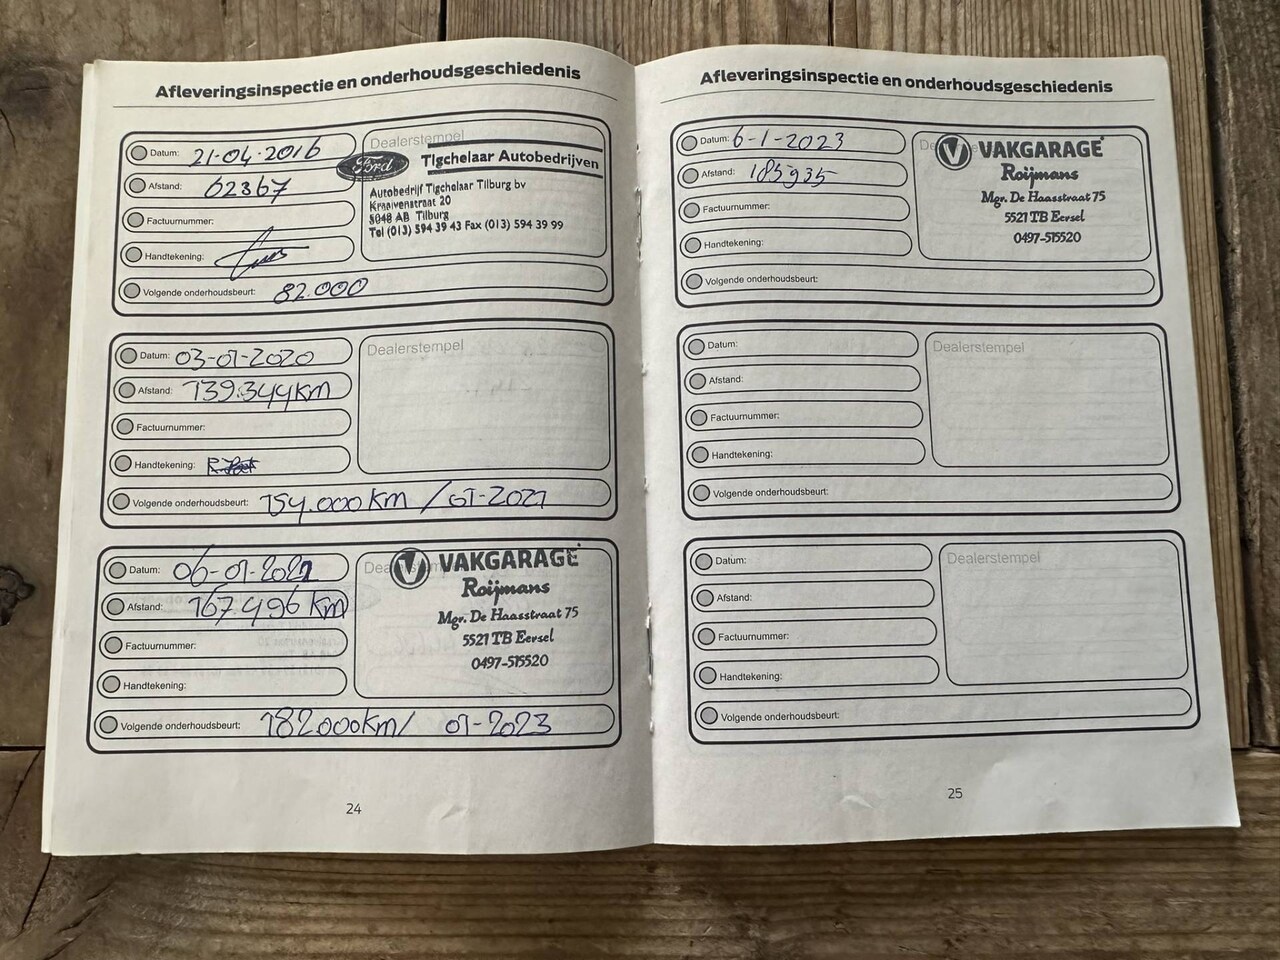 Afleveringsinspectie en onderhoudsgeschiedenis
Datum: 21-04-2016
Afstand: 62367
Factuurnummer:
Handtekening:
Volgende onderhoudsbeurt: 82.000
Dealerstempel
Ford Tigchelaar Autobedrijven
Autobedrijf Tigchelaar Tilburg bv
Kraaivenstraat 20
5048 AB Tilburg
Tel (013) 594 39 43 Fax (013) 594 39 99
Datum: 03-01-2020
Afstand: 139.344 km
Factuurnummer:
Handtekening:
Volgende onderhoudsbeurt: 154.000 km / 01-2021
Dealerstempel
Datum: 06-01-2021
Afstand: 167.496 km
Factuurnummer:
Handtekening:
Volgende onderhoudsbeurt: 182.000km/ 01-2023
VAKGARAGE
Roijmans
Mgr. De Haasstraat 75
5521 TB Eersel
0497-515520
24
Afleveringsinspectie en onderhoudsgeschiedenis
Datum: 6-1-2023
Afstand: 185935
Factuurnummer:
Handtekening:
Volgende onderhoudsbeurt:
VAKGARAGE
Roijmans
Mgr. De Haasstraat 75
5521 TB Eersel
0497-515520
Datum:
Afstand:
Factuurnummer:
Handtekening:
Volgende onderhoudsbeurt:
Dealerstempel
Datum:
Afstand:
Factuurnummer:
Handtekening:
Volgende onderhoudsbeurt:
Dealerstempel
25